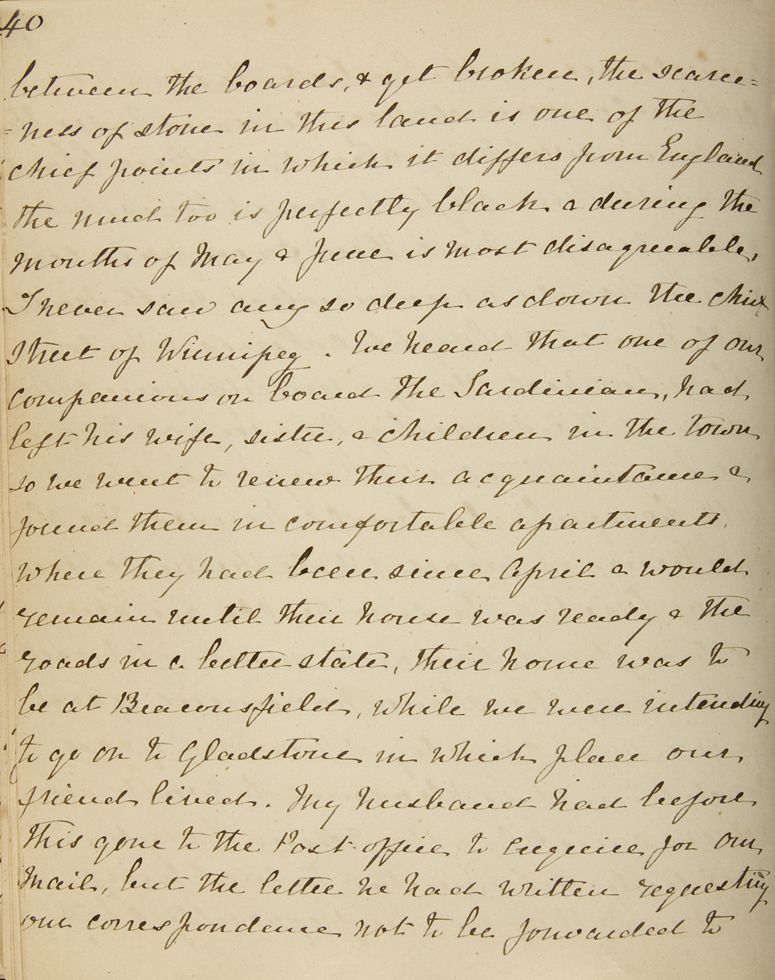 40
between the boards, & get broken, the scarce=
=ness of stone in this land is one of the
chief points in which it differs from England
the mud too is perfectly black & during the
months of May & June is most disagreeable,
I never saw any so deep as down the chief
Street of Winnipeg. We heard that one of our
companions on board the Sardinian, had
left his wife, sister, & children in the town
so we went to renew their acquaintance &
found them in comfortable apartments,
where they had been since April & would
remain until their house was ready & the
roads in a better state, their home was to
be at Beaconsfield, while we were intending
to go on to Gladstone in which place our
friend lived. My husband had before
this gone to the Post office to enquire for our
Mail, but the letter he had written requesting
our correspondence not to be forwarded to